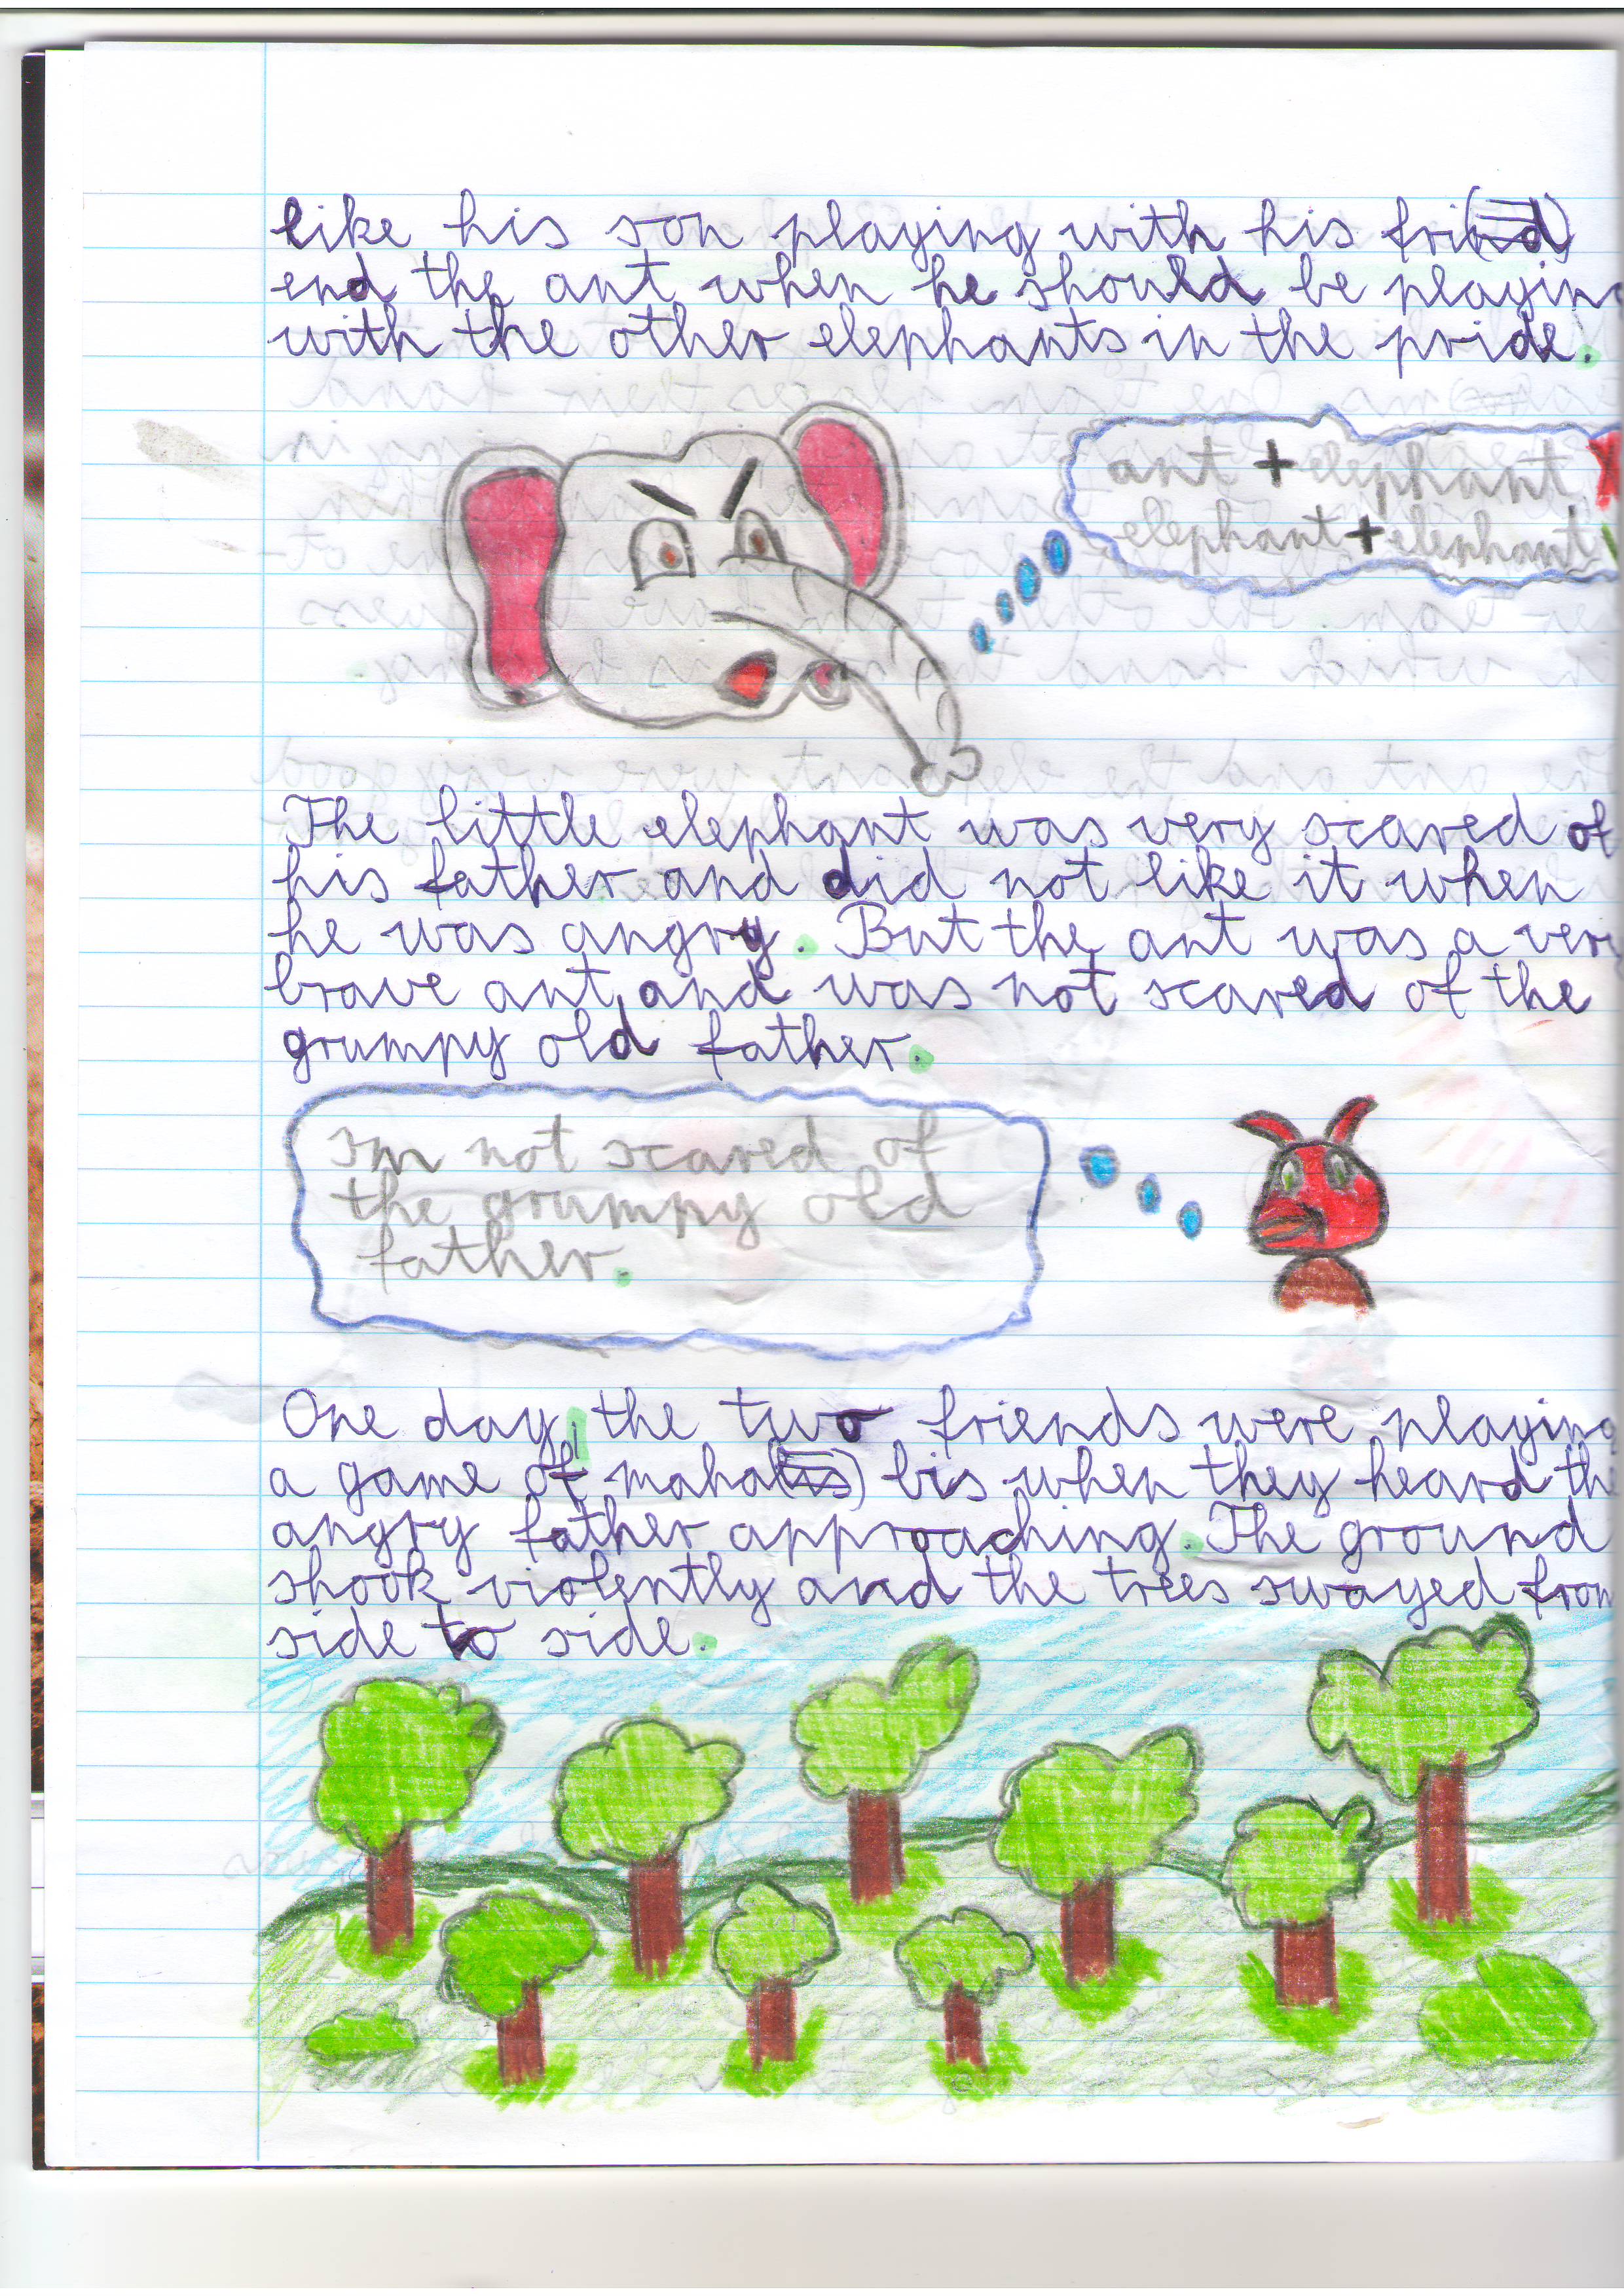 like his son playing with his fri(nd)
end the ant when he should be playing
with the other elephants in the pride.
ant + elephant
elephant + elephant
The little elephant was very scared of
his father and did not like it when
he was angry. But the ant was a very
brave ant and was not scared of the
grumpy old father.
I'm not scared of
the grumpy old
father.
One day, the two friends were playing
a game of maha(lis) bis when they heard the
angry father approaching. The ground
shook violently and the trees swayed from
side to side.